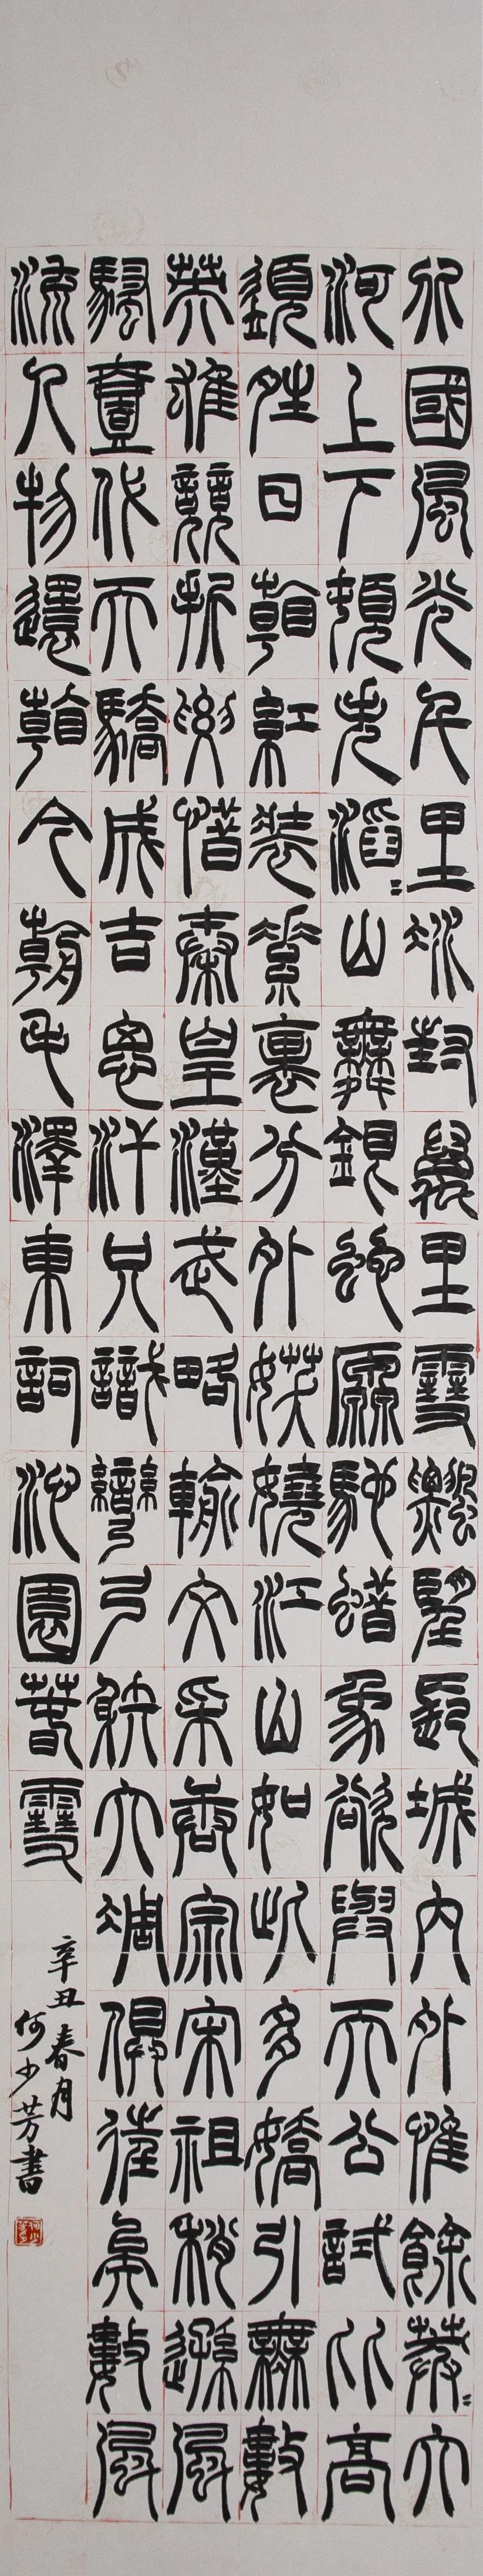 北國風光千里冰封萬里雪飄望長城內外惟餘莽〻大
河上下頓失滔〻山舞銀蛇原馳蠟象欲與天公試比高
須晴日看紅裝素裹分外妖嬈江山如此多嬌引無數
英雄競折腰惜秦皇漢武略輸文采唐宗宋祖稍遜風
騷壹代天驕成吉思汗只識彎弓射大雕俱往矣數風
流人物還看今朝毛澤東詞沁園春雪
辛丑春月
何少芳書